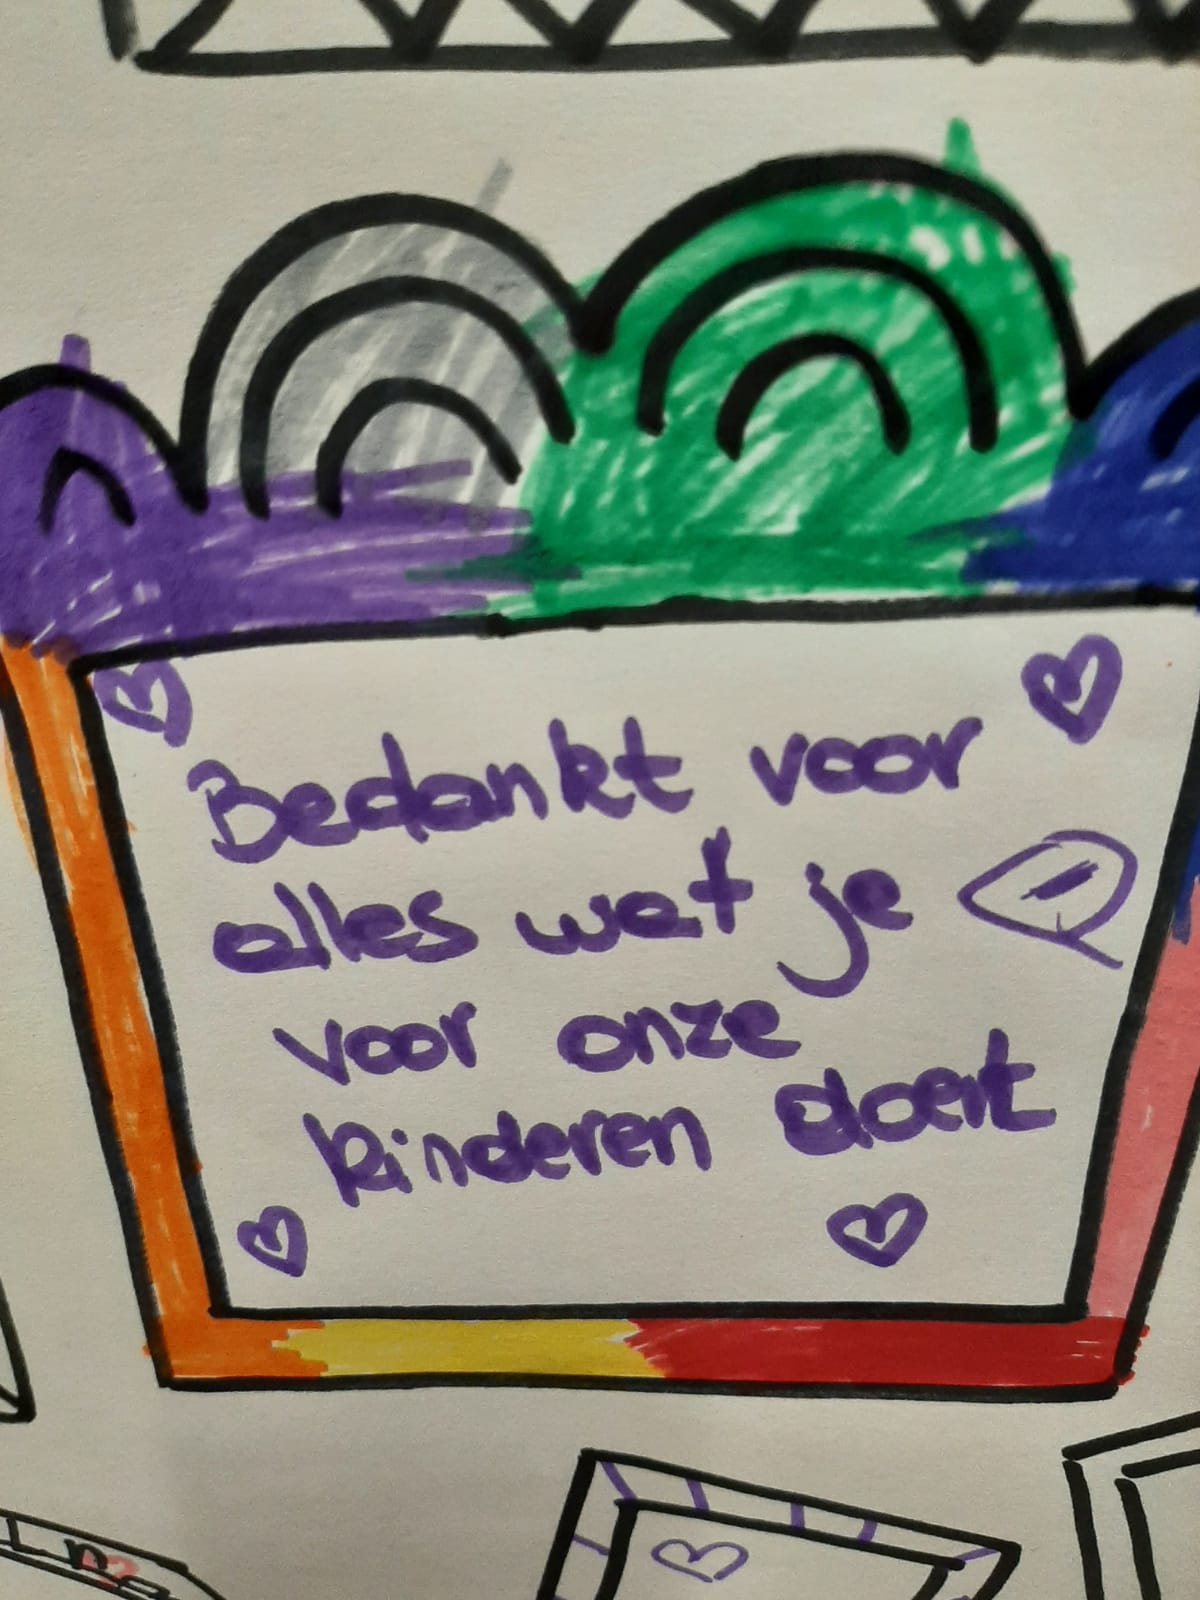 Bedankt voor
alles wat je
voor onze
kinderen doet